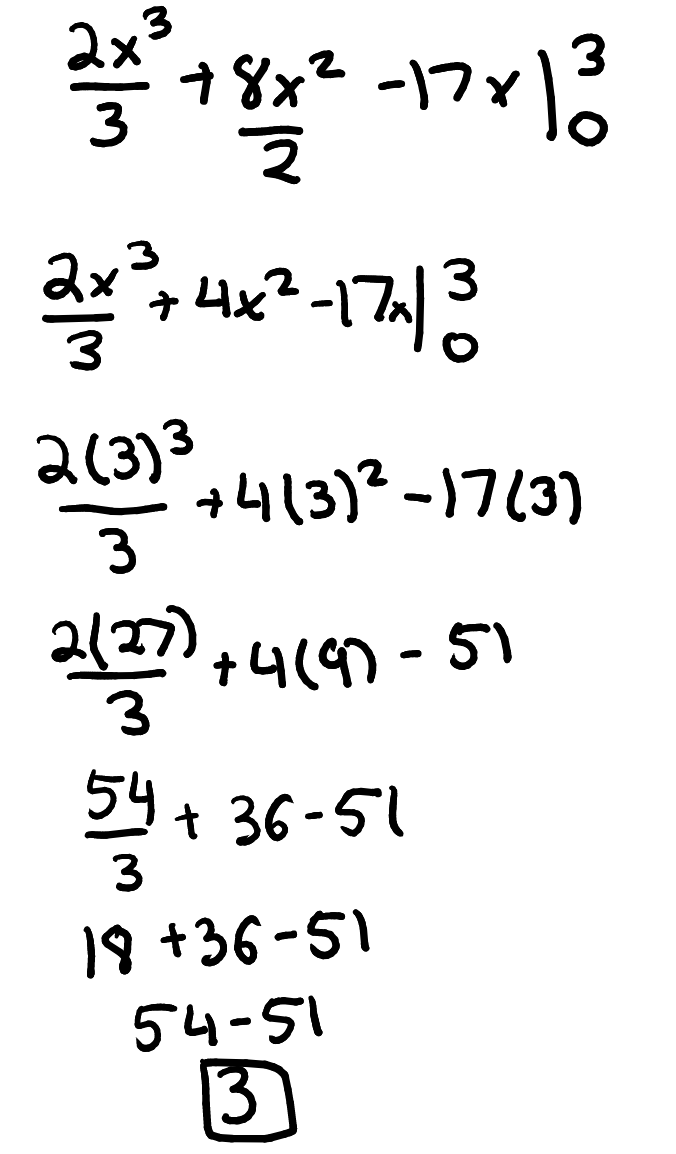 2x³/3 + 8x²/2 - 17x |₀³
2x³/3 + 4x² - 17x |₀³
2(3)³/3 + 4(3)² - 17(3)
2(27)/3 + 4(9) - 51
54/3 + 36 - 51
18 + 36 - 51
54 - 51
3